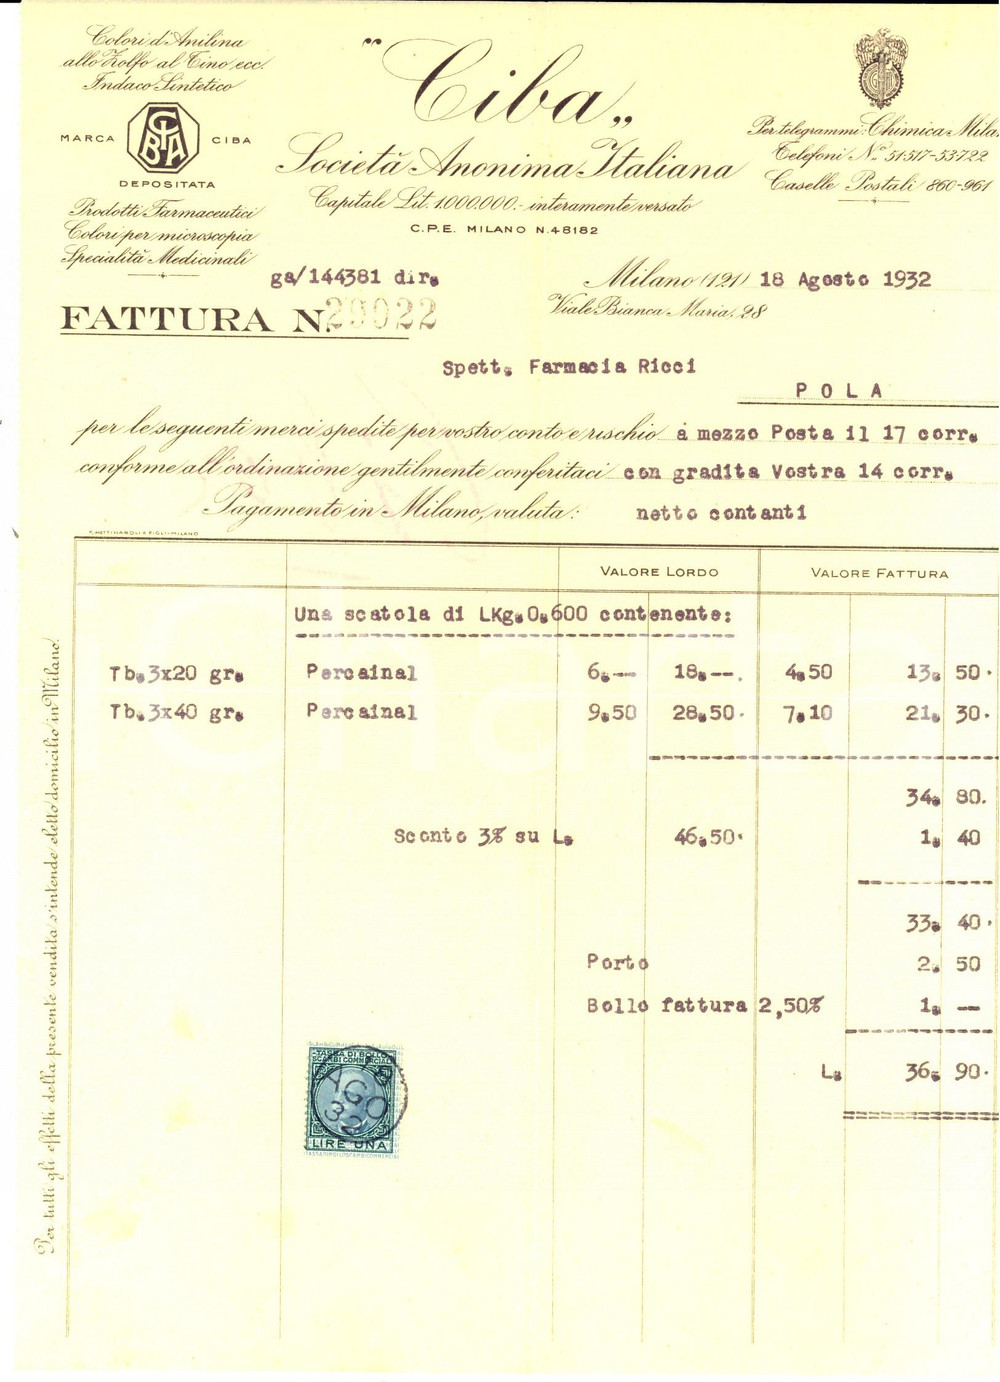 Colori d'Anilina
allo Zolfo al Tino ecc.
Indaco Sintetico
MARCA CIBA CIBA
DEPOSITATA
Prodotti Farmaceutici
Colori per microscopia
Specialità Medicinali
"Ciba„
Società Anonima Italiana
Capitale Lit. 1.000.000.- interamente versato
C.P.E. MILANO N. 48182
Per telegrammi: Chimica Mila
Telefoni N.º 51-517-53722
Caselle Postali 860-961
ga/144381 dir.
Milano (121) 18 Agosto 1932
Viale Bianca Maria, 28
FATTURA N. 29022
Spett. Farmacia Ricci
POLA
per le seguenti merci spedite per vostro conto e rischio a mezzo Posta il 17 corr.
conforme all'ordinazione gentilmente conferitaci con gradita Vostra 14 corr.
Pagamento in Milano, valuta: netto contanti
VALORE LORDO VALORE FATTURA
Una scatola di LKg.0.600 contenente:
Tb.3x20 gr. Percainal 6.-- 18.--. 4.50 13. 50.
Tb.3x40 gr. Percainal 9.50 28.50. 7.10 21. 30.
34. 80.
Sconto 3% su L. 46.50. 1. 40
33. 40.
Porto 2. 50
Bollo fattura 2,50% 1. --
L. 36. 90.
TASSA DI BOLLO
SCAMBI COMMERCIALI
AGO
32
LIRE UNA
Per tutti gli effetti della presente vendita s'intende eletto domicilio in Milano.